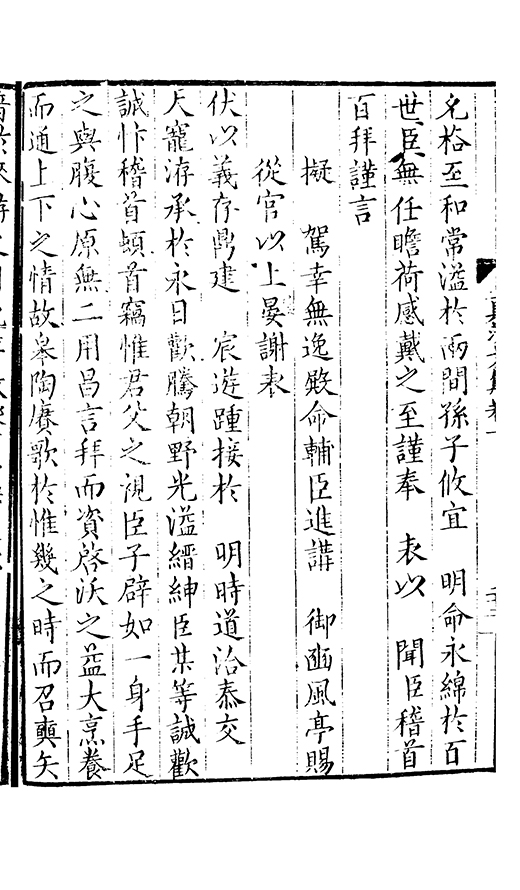 允格至和常溢於兩間孫子攸宜　明命永綿於百
世臣無任瞻荷感戴之至謹奉　表以　聞臣稽首
百拜謹言
擬　駕幸無逸殿命輔臣進講　御豳風亭賜
從官以上宴謝表
伏以義存鼎建　宸遊踵接於　明時道洽泰交
天寵洊承於永日歡騰朝野光溢縉紳臣某等誠歡
誠忭稽首頓首竊惟君父之視臣子辟如一身手足
之與腹心原無二用昌言拜而資啓沃之益大烹養
而通上下之情故皋陶賡歌於惟幾之時而召奭矢